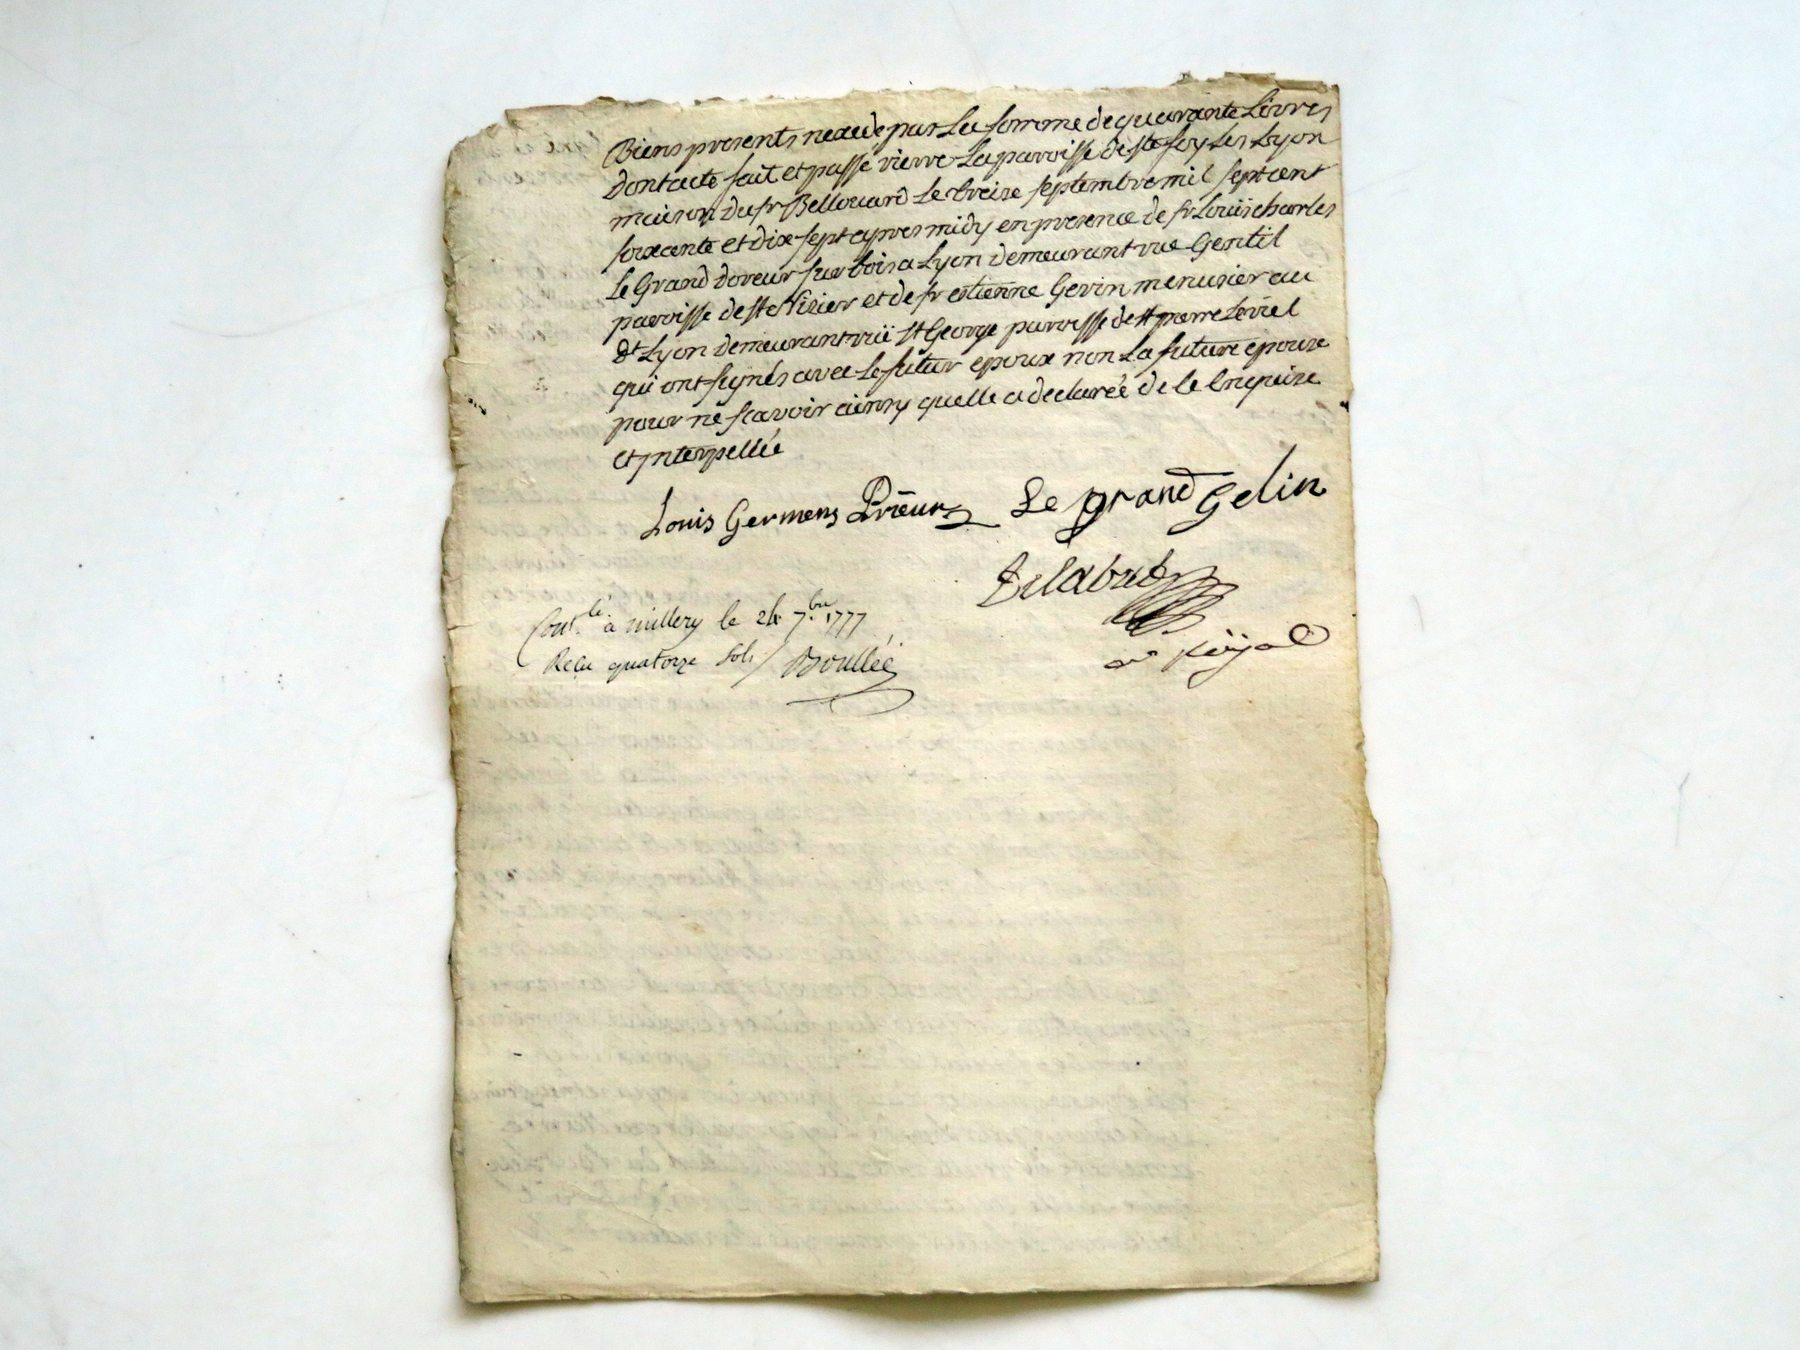 Biens presents nexcede pas La somme de quarante Livres
dont acte fait et passé rierre La paroisse de ste foy Les Lyon
maison du sr Bellouard Le treize septembre mil sept cent
soixante et dix sept apres midy en presence de sr Louïs charles
Le Grand doreur sur bois a Lyon demeurant rue Gentil
paroisse de st Nizier et de sr estienne Gevin menusier au
dt Lyon demeurant ruë st George paroisse de st pierre Leviel
quï ont signés avec Le futur epoux non La future epouze
pour ne scavoir ainsy quelle a declarée de ce Enquize
et jnterpellée
Louis Germens Prieur Le grand Gelin
Delabut
nre Royal
Contlé à millery le 24 7bre 1777
Reçu quatorze sols Boullée